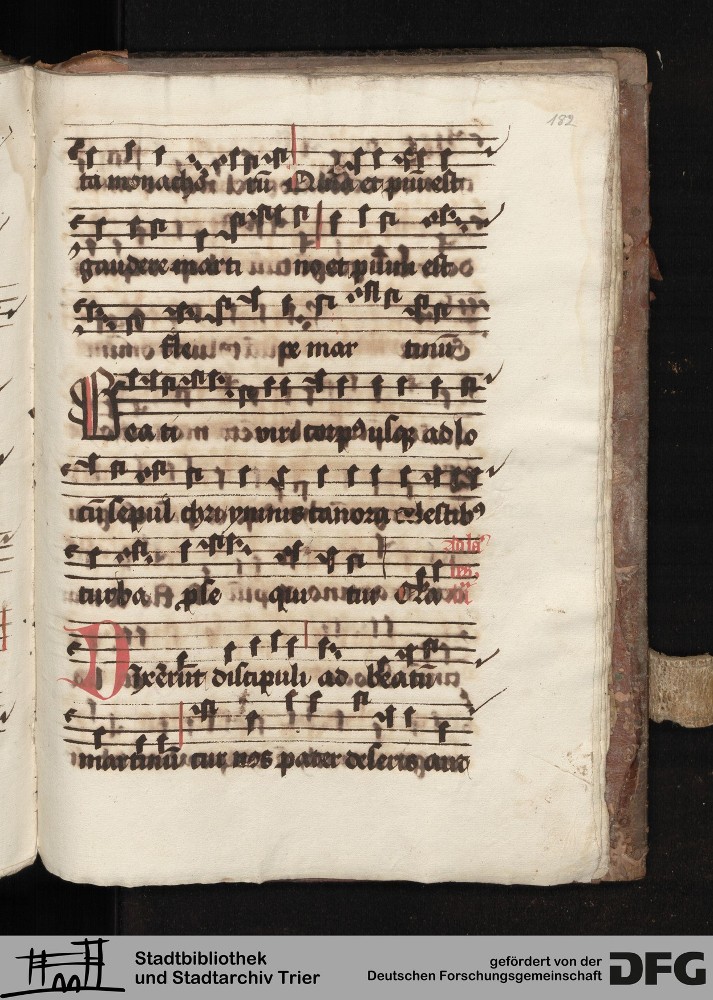 182
ta monachorū Quia et piū est
gaudere marti no et pium est
flere mar tinū
Beati viri corpꝰ usqꝫ ad lo
cū sepul chri ympnis canora celestibꝰ
turba pse qui tur Gła
ad lau
Dixerūt discipuli ad beatū
martinū cur nos pater deseris aut
Stadtbibliothek
und Stadtarchiv Trier
gefördert von der
Deutschen Forschungsgemeinschaft
DFG